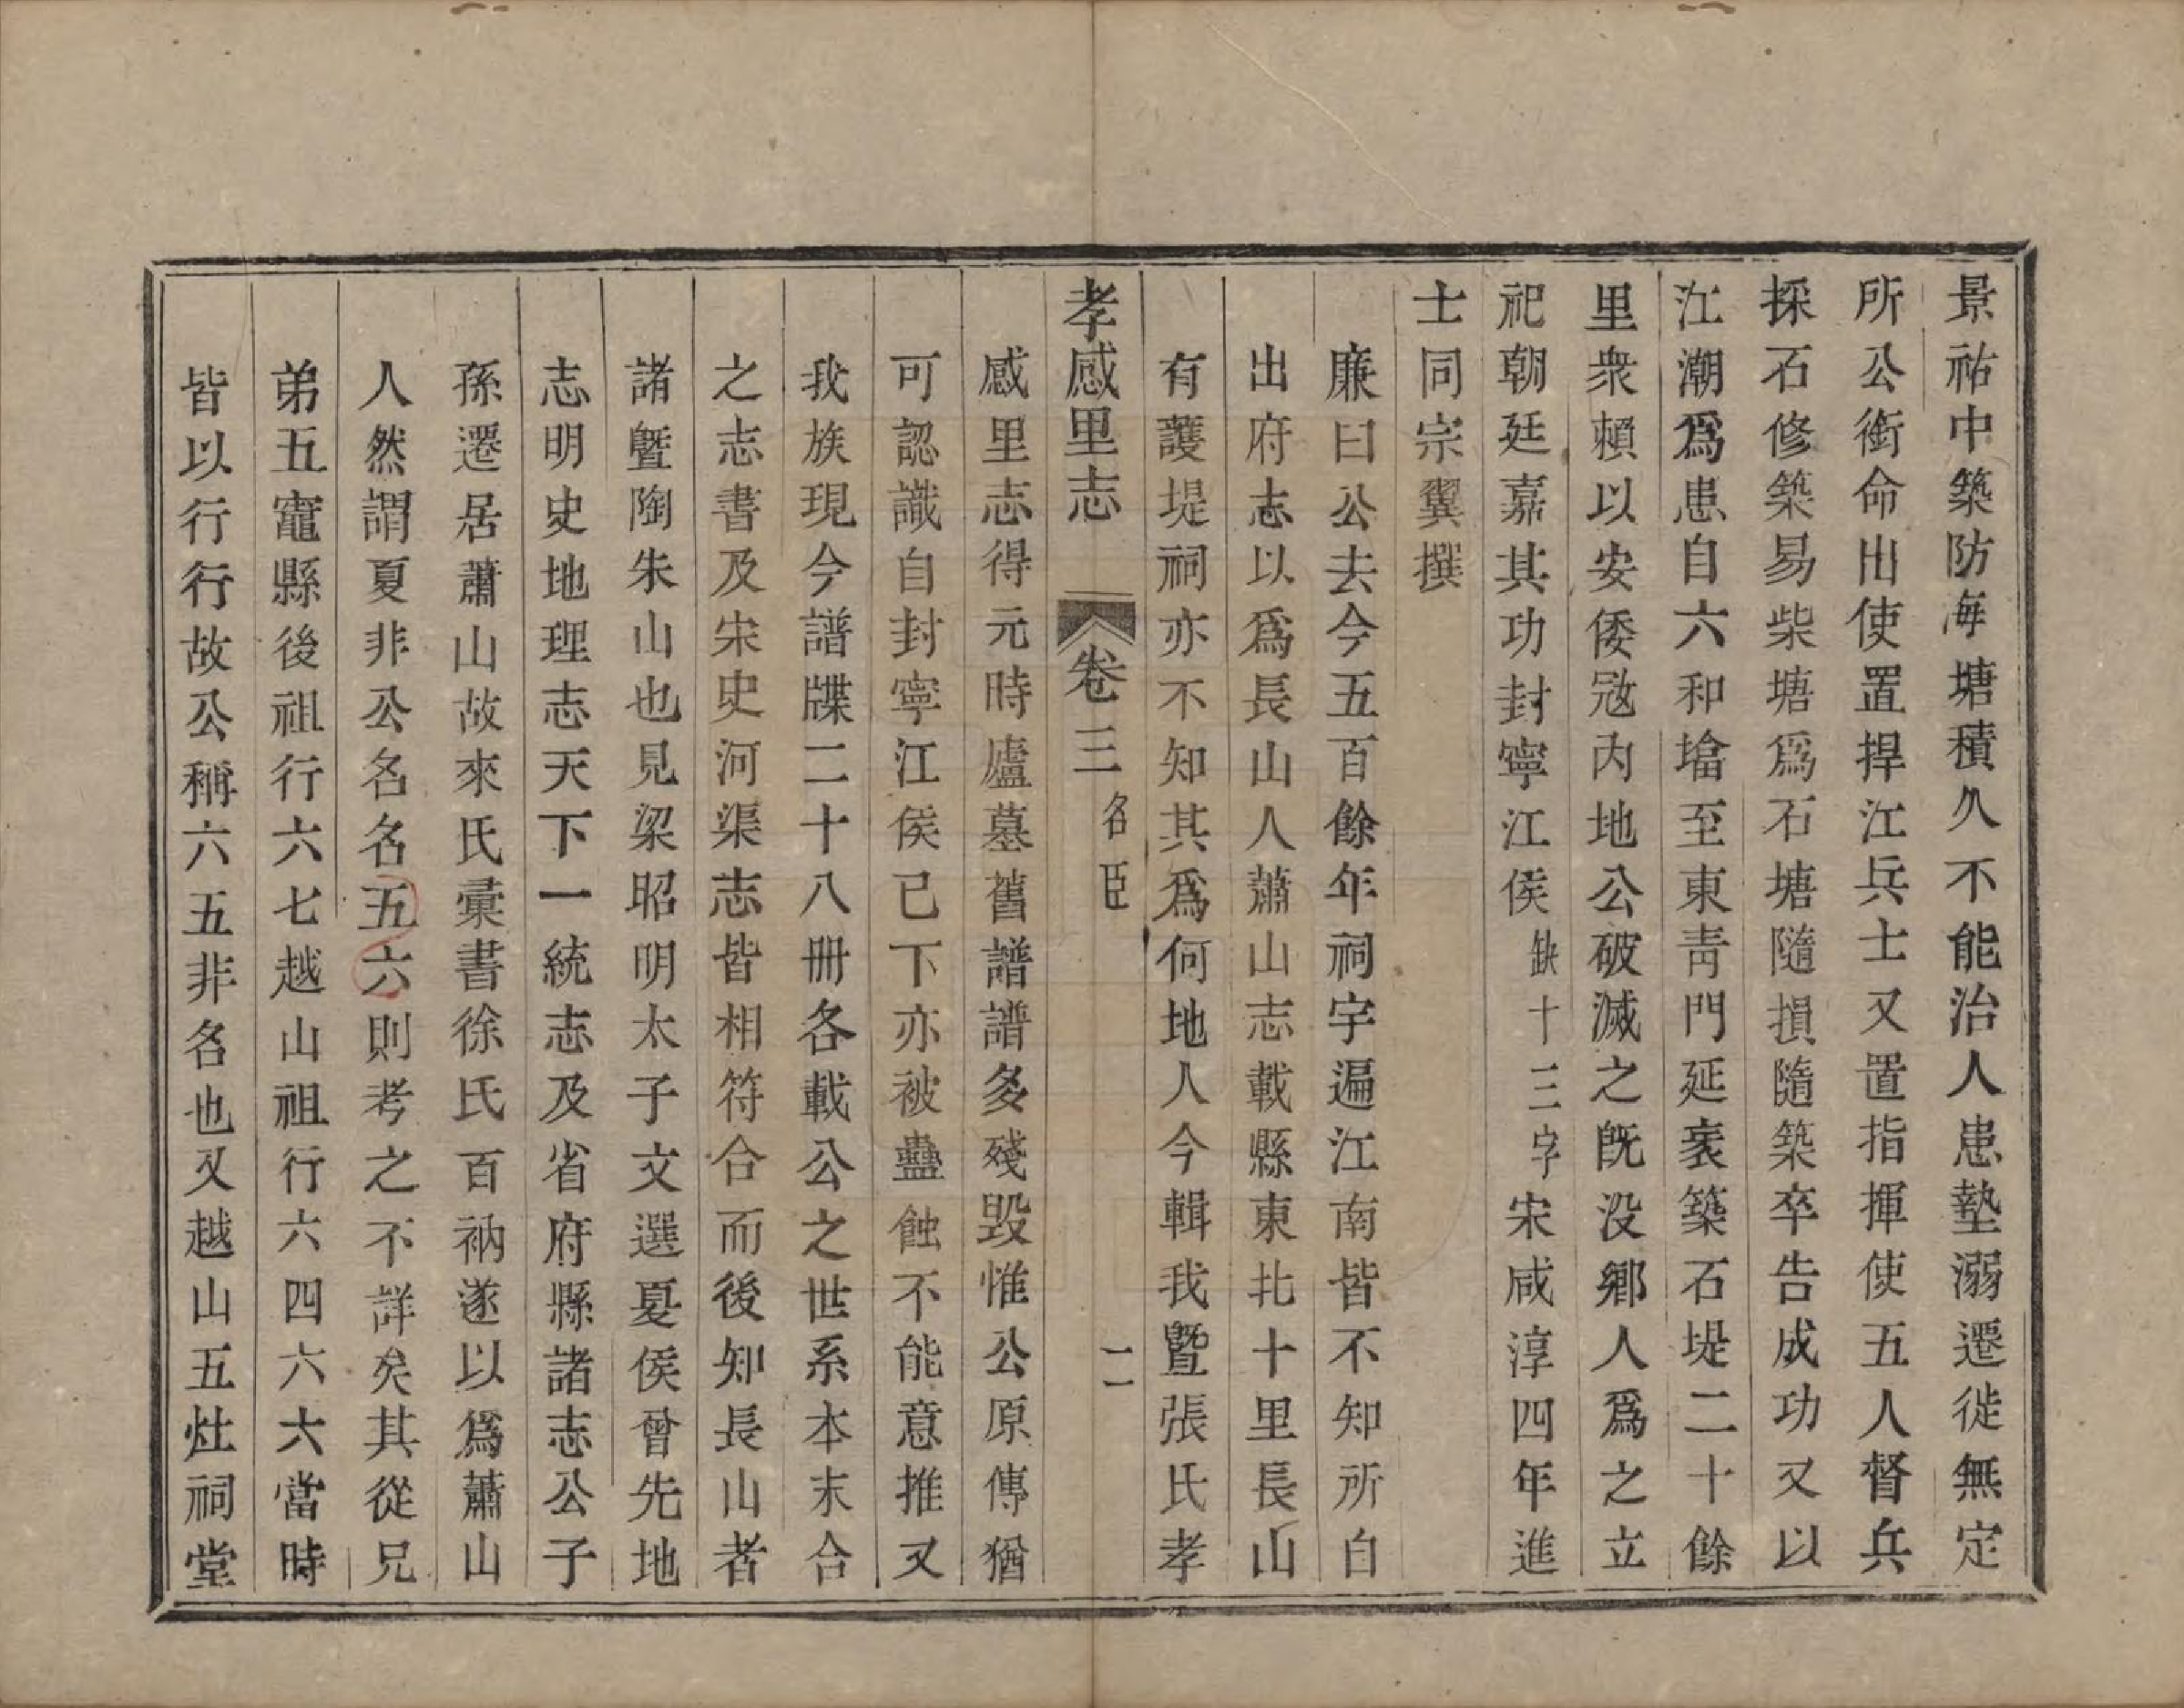 景祐中築防海塘積久不能治人患墊溺遷徙無定
所公銜命出使置捍江兵士又置指揮使五人督兵
採石修築易柴塘爲石塘隨損隨築卒告成功又以
江潮爲患自六和墖至東靑門延袤築石堤二十餘
里衆賴以安倭宼內地公破滅之旣没鄕人爲之立
祀朝廷嘉其功封寧江侯缺十三字宋咸淳四年進
士同宗翼撰
廉曰公去今五百餘年祠宇遍江南皆不知所自
出府志以爲長山人蕭山志載縣東北十里長山
有護堤祠亦不知其爲何地人今輯我暨張氏孝
孝感里志 卷三 名臣 二
感里志得元時廬墓舊譜譜多殘毀惟公原傳猶
可認識自封寧江侯已下亦被蠧蝕不能意推又
我族現今譜牒二十八冊各載公之世系本末合
之志書及宋史河渠志皆相符合而後知長山者
諸曁陶朱山也見梁昭明太子文選夏侯曾先地
志明史地理志天下一統志及省府縣諸志公子
孫遷居蕭山故來氏彙書徐氏百衲遂以爲蕭山
人然謂夏非公名名五六則考之不詳矣其從兄
弟五竈縣後祖行六七越山祖行六四六六當時
皆以行行故公稱六五非名也又越山五灶祠堂